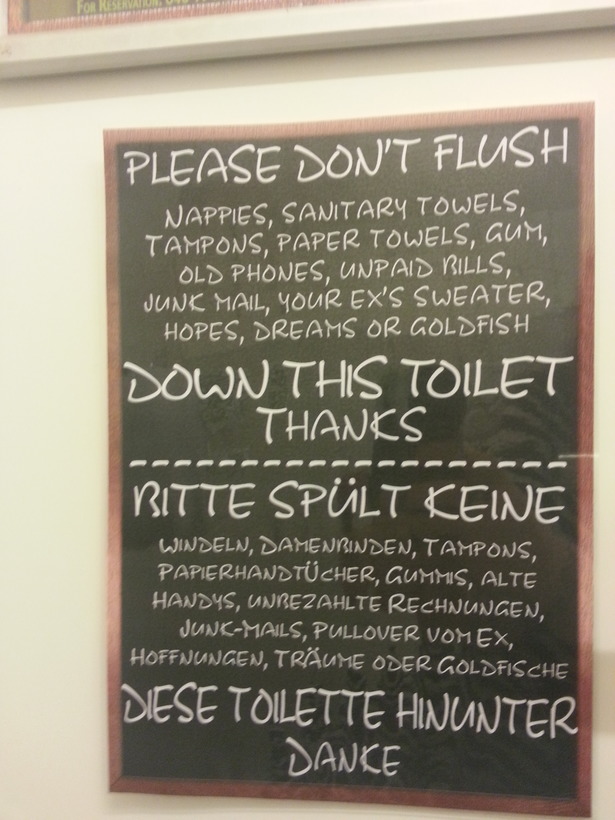 FOR RESERVATION,
PLEASE DON'T FLUSH
NAPPIES, SANITARY TOWELS,
TAMPONS, PAPER TOWELS, GUM,
OLD PHONES, UNPAID BILLS,
JUNK MAIL, YOUR EX'S SWEATER,
HOPES, DREAMS OR GOLDFISH
DOWN THIS TOILET
THANKS
BITTE SPÜLT KEINE
WINDELN, DAMENBINDEN, TAMPONS,
PAPIERHANDTÜCHER, GUMMIS, ALTE
HANDYS, UNBEZAHLTE RECHNUNGEN,
JUNK-MAILS, PULLOVER VOM EX,
HOFFNUNGEN, TRÄUME ODER GOLDFISCHE
DIESE TOILETTE HINUNTER
DANKE